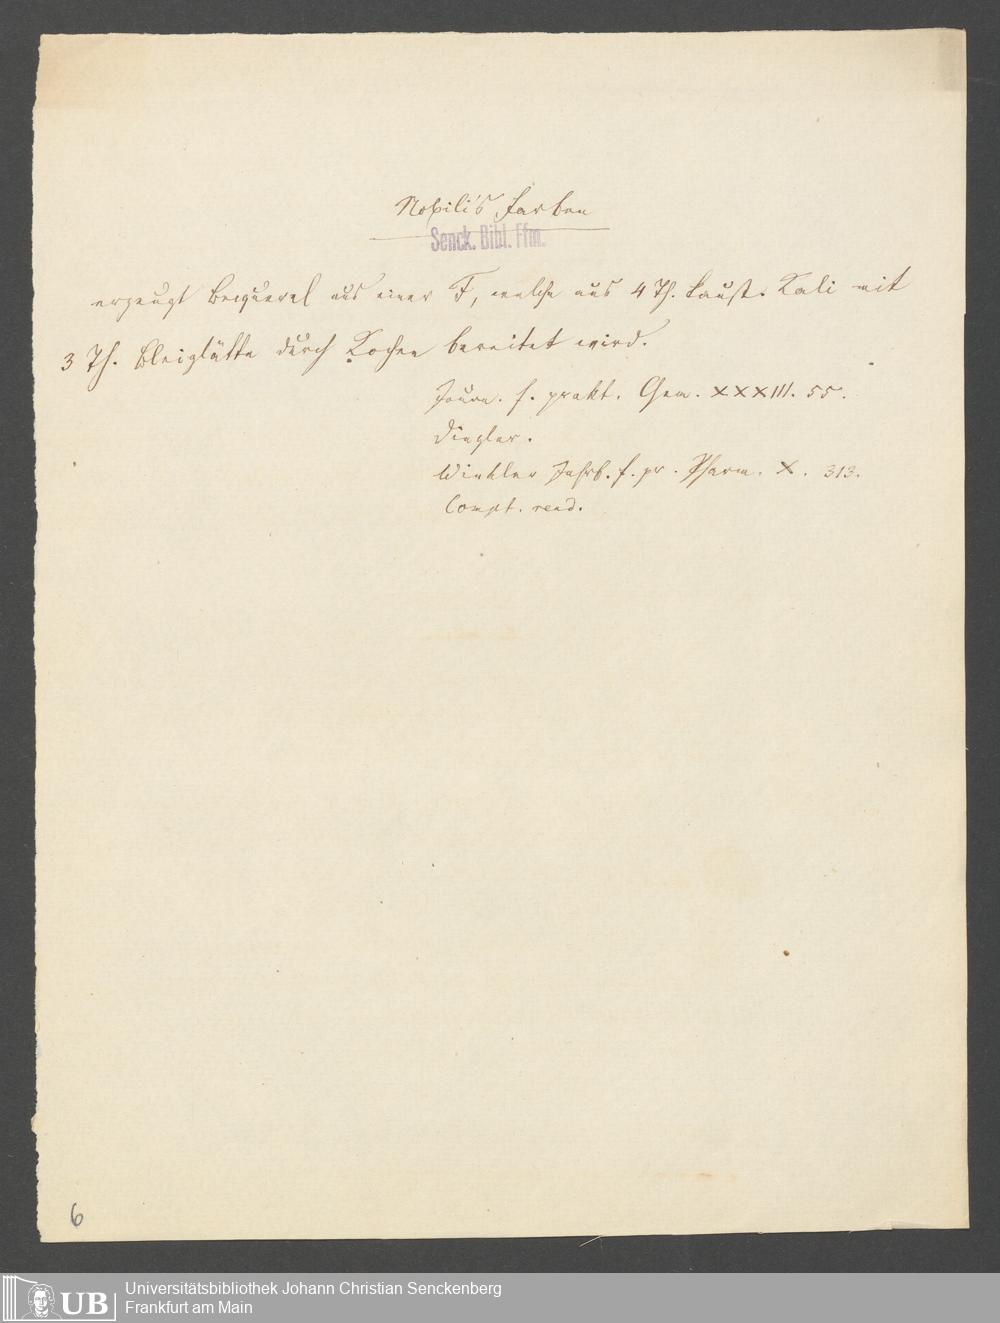 Nobili's Farben
Senck. Bibl. Ffm.
erzeugt Becquerel aus einer F, welche aus 4 Th. kaust. Kali mit
3 Th. Bleiglätte durch Kochen bereitet wird.
Journ. f. prakt. Chem. XXXIII. 55.
Dingler.
Winkler Jahrb. f. pr. Pharm. X. 313.
Compt. rend.
6
UB
Universitätsbibliothek Johann Christian Senckenberg
Frankfurt am Main